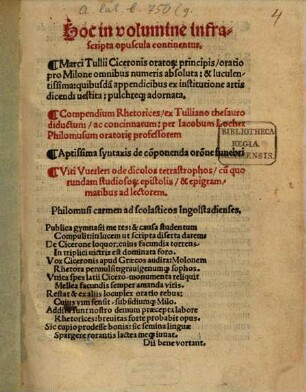 A lat. b. 750 (9.
4
Hoc in volumine infra-
scripta opuscula continentur.
¶Marci Tullii Ciceronis oratoꝝ principis/oratio
pro Milone omnibus numeris absoluta: & luculen-
tissima: quibusdā appendicibus ex institutione artis
dicendi vestita: pulchreqꝫ adornata.
¶Compendium Rhetorices/ex Tulliano thesauro
diductum/ac concinnatum: per Iacobum Locher
Philomusum oratorię professorem
¶Aptissima syntaxis de cōponenda orōne funebri
¶Viti Vuerleri ode dicolos tetrastrophos/cū quo
rundam studiosoꝝ epistolis/& epigram-
matibus ad lectorem.
BIBLIOTHECA
REGIA
MONACENSIS.
Philomusi carmen ad scolasticos Ingolstadienses.
Publica gymnasii me res: & causa studentum
Compulit in lucem ut scripta diserta darem
De Cicerone loquor: cuius facundia torrens
In triplici victrix est dominata foro.
Vox Ciceronis apud Gręcos audita: Molonem
Rhetora permulsit graiugenumqꝫ sophos.
Vnica spes latii Cicero monumenta reliquit
Mellea facundis semper amanda viris.
Restat & ex aliis locuples oratio rebus:
Cuius vim sensit/subsidiumqꝫ Milo.
Addita sunt nostro demum pręcepta labore
Rhetorices: breuitas forte probabit opus.
Sic cupio prodesse bonis: sic semina linguę
Spargere romanis lactea meqꝫ iuuat.
Dii bene vortant.